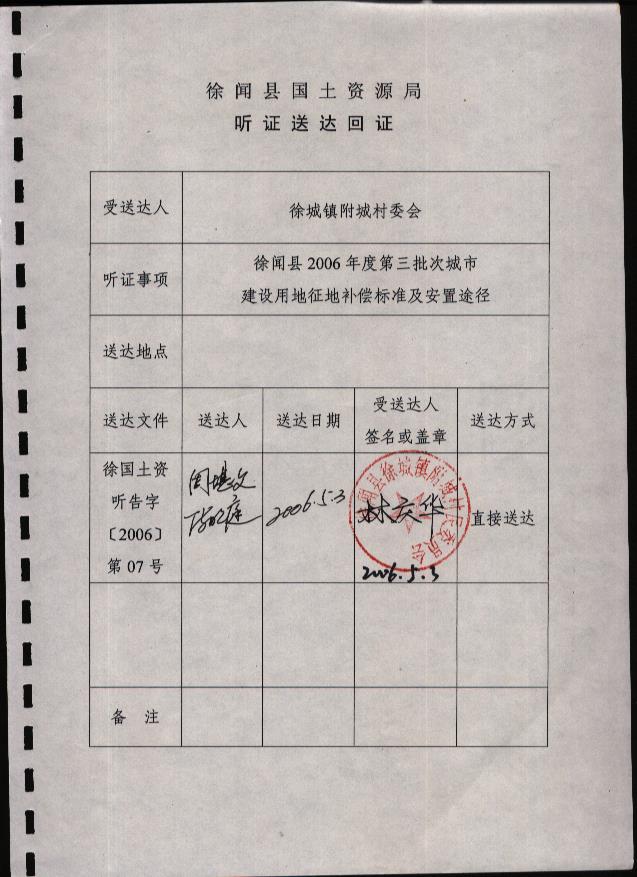 徐闻县国土资源局
听证送达回证
受送达人
徐城镇附城村委会
听证事项
徐闻县2006年度第三批次城市
建设用地征地补偿标准及安置途径
送达地点
送达文件
送达人
送达日期
受送达人
签名或盖章
送达方式
徐国土资
听告字
〔2006〕
第07号
2006.5.3
林庆华
2006.5.3
直接送达
备 注